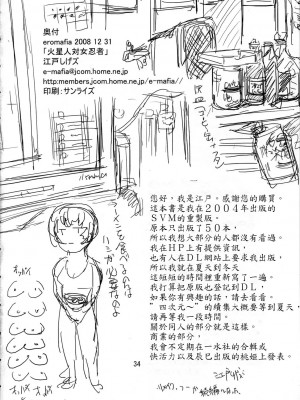 奥付
eromafia 2008 12 31
「火星人対女忍者」
江戸しげズ
e-mafia@jcom.home.ne.jp
http:members.jcom.home.ne.jp/e-mafia//
印刷:サンライズ
ラーメンを食べるのは
ハシが必要なのよ
您好,我是江戸,感謝您的購買。
這本書是我在2004年出版的
SVM的重製版。
原本只出版了50本,
所以我想大部分的人都沒有看過。
我在HP上有提供資訊,
也有人在DL網站上要求我出版,
所以我就在夏天到冬天
這短短的時間裡重新寫了一遍。
我打算把原版也登記到DL,
如果你有興趣的話,請去看看。
"四次元~"的續集大概要等到夏天,
請再等我一段時間。
關於同人的部分就是這樣。
商業的部分,
我會不定期在一水社的合輯或
快活力以及辰巳出版的桃姫上發表。
江戸しげズ
34